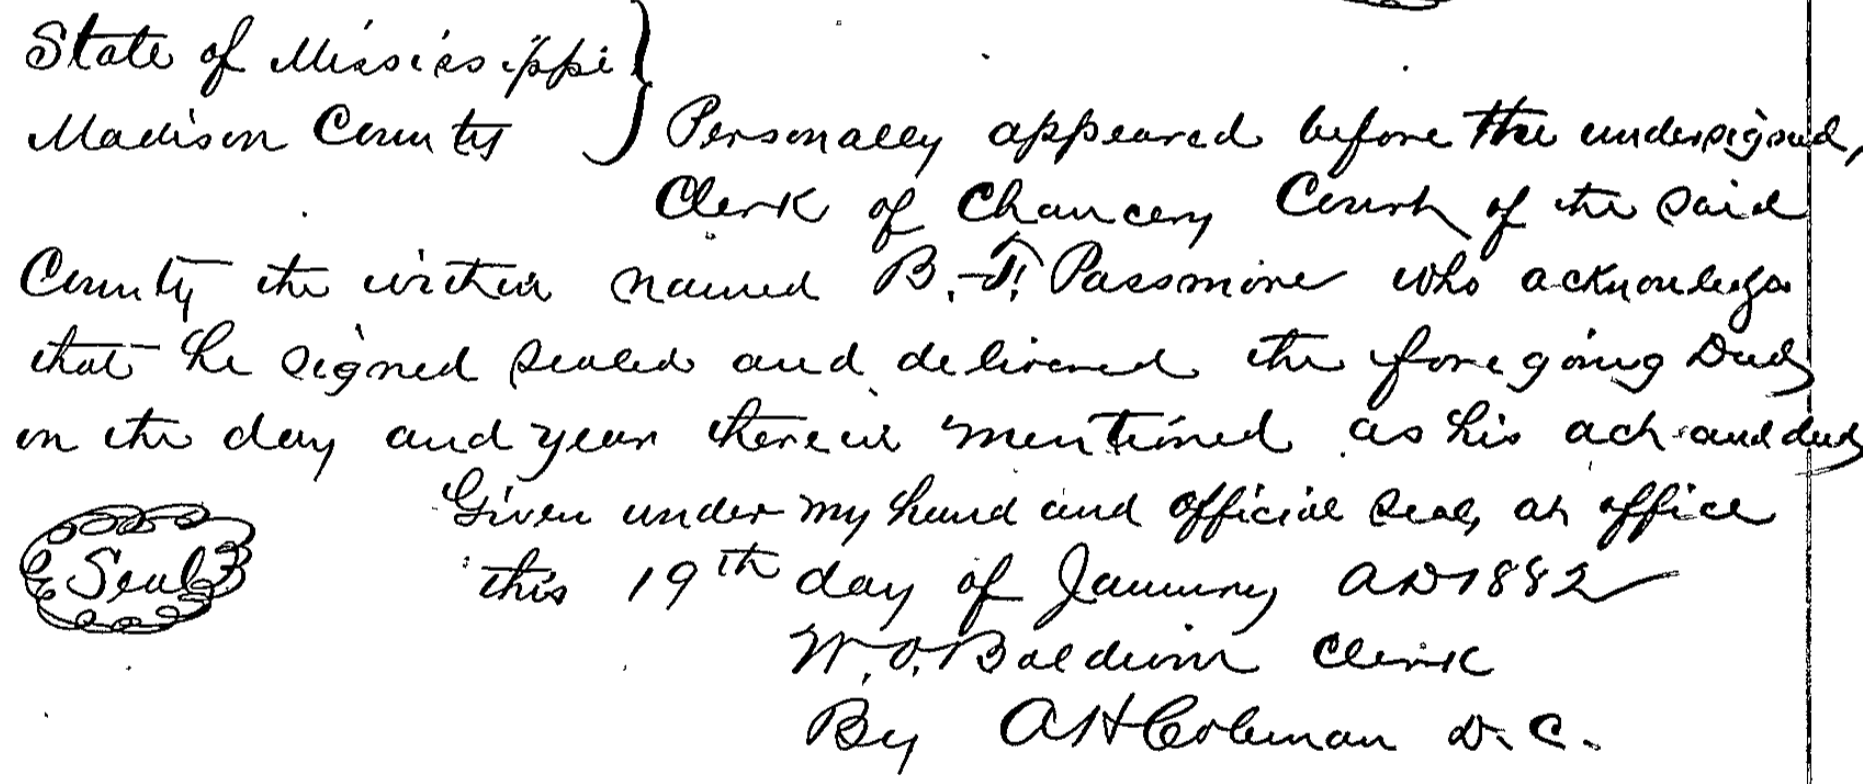 State of Mississippi }
Madison County } Personally appeared before the undersigned,
Clerk of Chancery Court of the said
County the within named B. F. Passmore who acknowledge
that he signed sealed and delivered the foregoing Deed
on the day and year therein mentioned as his act and deed
Given under my hand and official seal, at office
Seal this 19th day of January AD 1882
W. O. Baldwin Clerk
By A H Coleman D. C.